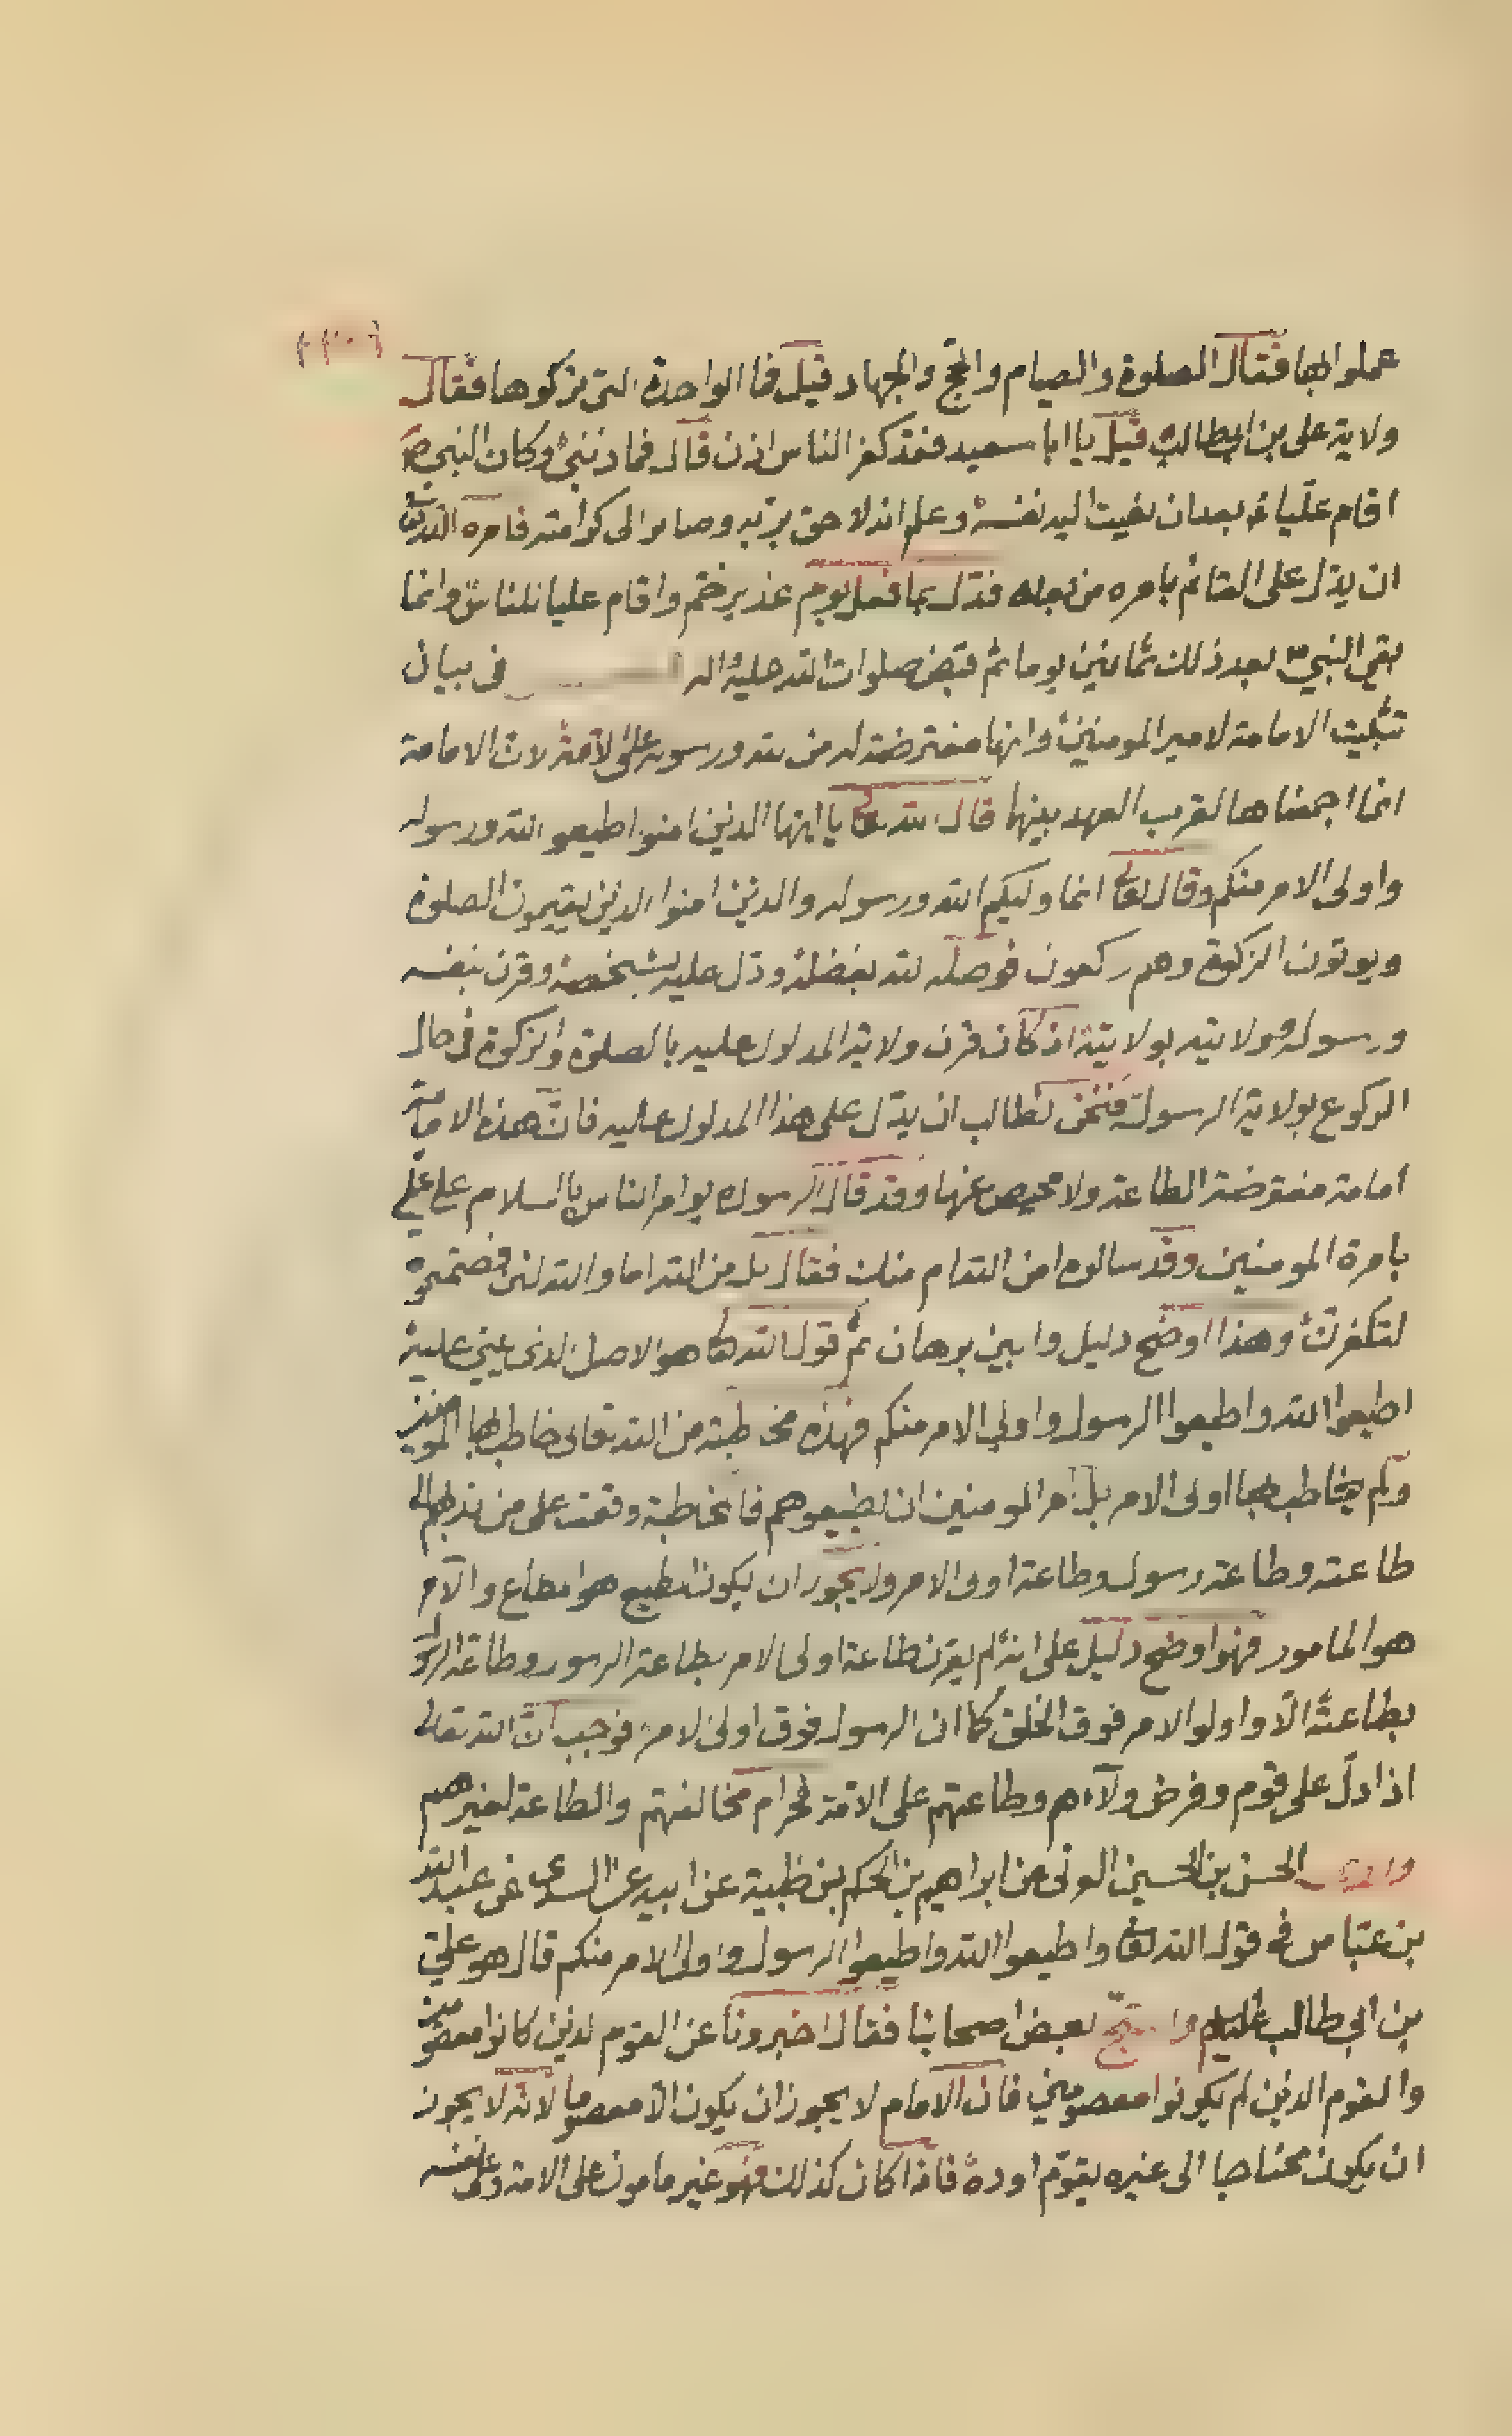 عملوا بها فقال الصلوة والصيام والحج والجهاد قيل فما الواحدة التي تركوها فقال
ولاية علي بن ابيطالب قيل يا ابا سعيد فقد كفر الناس اذن قال فما ذنبي وكان النبي ص
اقام عليا بعد ان نعيت اليه نفسه وعلم انه لاحق بربه وصاير الى كرامته فامره الله
ان يدل على القائم بامره من بعده فدل بما فعل يوم غدير خم واقام عليا للناس وانما
بقي النبي بعد ذلك ثمانين يوما ثم قبض صلوات الله عليه واله في بيان
تثبيت الامامة لامير المومنين وانها مفترضة له من الله ورسوله على الامة لان الامامة
انما اجمعناها لقرب العهد بينها قال الله تعا يا ايها الذين امنوا اطيعو الله ورسوله
واولى الامر منكم وقال تعا انما وليكم الله ورسوله والذين امنوا الذين يقيمون الصلوة
ويوتون الزكوة وهم ركعون فوصله الله بفضله ودل عليه بشخصه وقرن بنفسه
ورسوله وولايته بولايته اذ كان قرن ولاية المدلول عليه بالصلوة والزكوة في حال
الركوع بولاية الرسول فنحن نطالب ان يدل على هذا المدلول عليه فان هذه الامامة
امامة مفترضة الطاعة ولا محيص عنها وقد قال الرسول يوامر الناس بالسلام على علي
بامرة المومنين وقد سالوه امن الله ام منك فقال بل من الله اما والله لئن
لتكفرن وهذا اوضح دليل وابين برهان ثم قول الله تعا هو الاصل الذي يبنى عليه
اطيعوا الله واطيعوا الرسول واولي الامر منكم فهذه مخاطبة من الله تعالى خاطب بها المومنين
ولم يخاطب بها اولى الامر بل امر المومنين ان يطيعوهم فالمخاطبة وقعت على من ندبهم الى
طاعته وطاعة رسوله وطاعة اولى الامر ولا يجوز ان يكون المطيع هو المطاع والآمر
هو المامور فهو اوضح دليل على انه لم يقرن طاعة اولى الامر بطاعة الرسول وطاعة الرسول
بطاعته الا واولو الامر فوق الخلق كما ان الرسول فوق اولى الامر فوجب ان الله تعالى
اذا دل على قوم وفرض ولاءهم وطاعتهم على الامة فحرام مخالفتهم والطاعة لغيرهم
الحسن بن الحسين العرني عن ابراهيم بن الحكم بن ظهير عن ابيه عن السدي عن عبد الله
بن عباس في قول الله تعا واطيعوا الله واطيعوا الرسول واولى الامر منكم قال هو علي
بن ابي طالب عليه السلام واحتج بعض اصحابنا فقال اخبرونا عن القوم الذين كانوا معصومين
والقوم الذين لم يكونوا معصومين فان الامام لا يجوز ان يكون الا معصوما لانه لا يجوز
ان يكون محتاجا الى غيره يقوم اوده فاذا كان كذلك فهو غير مامون على الامة وعلى نفسه